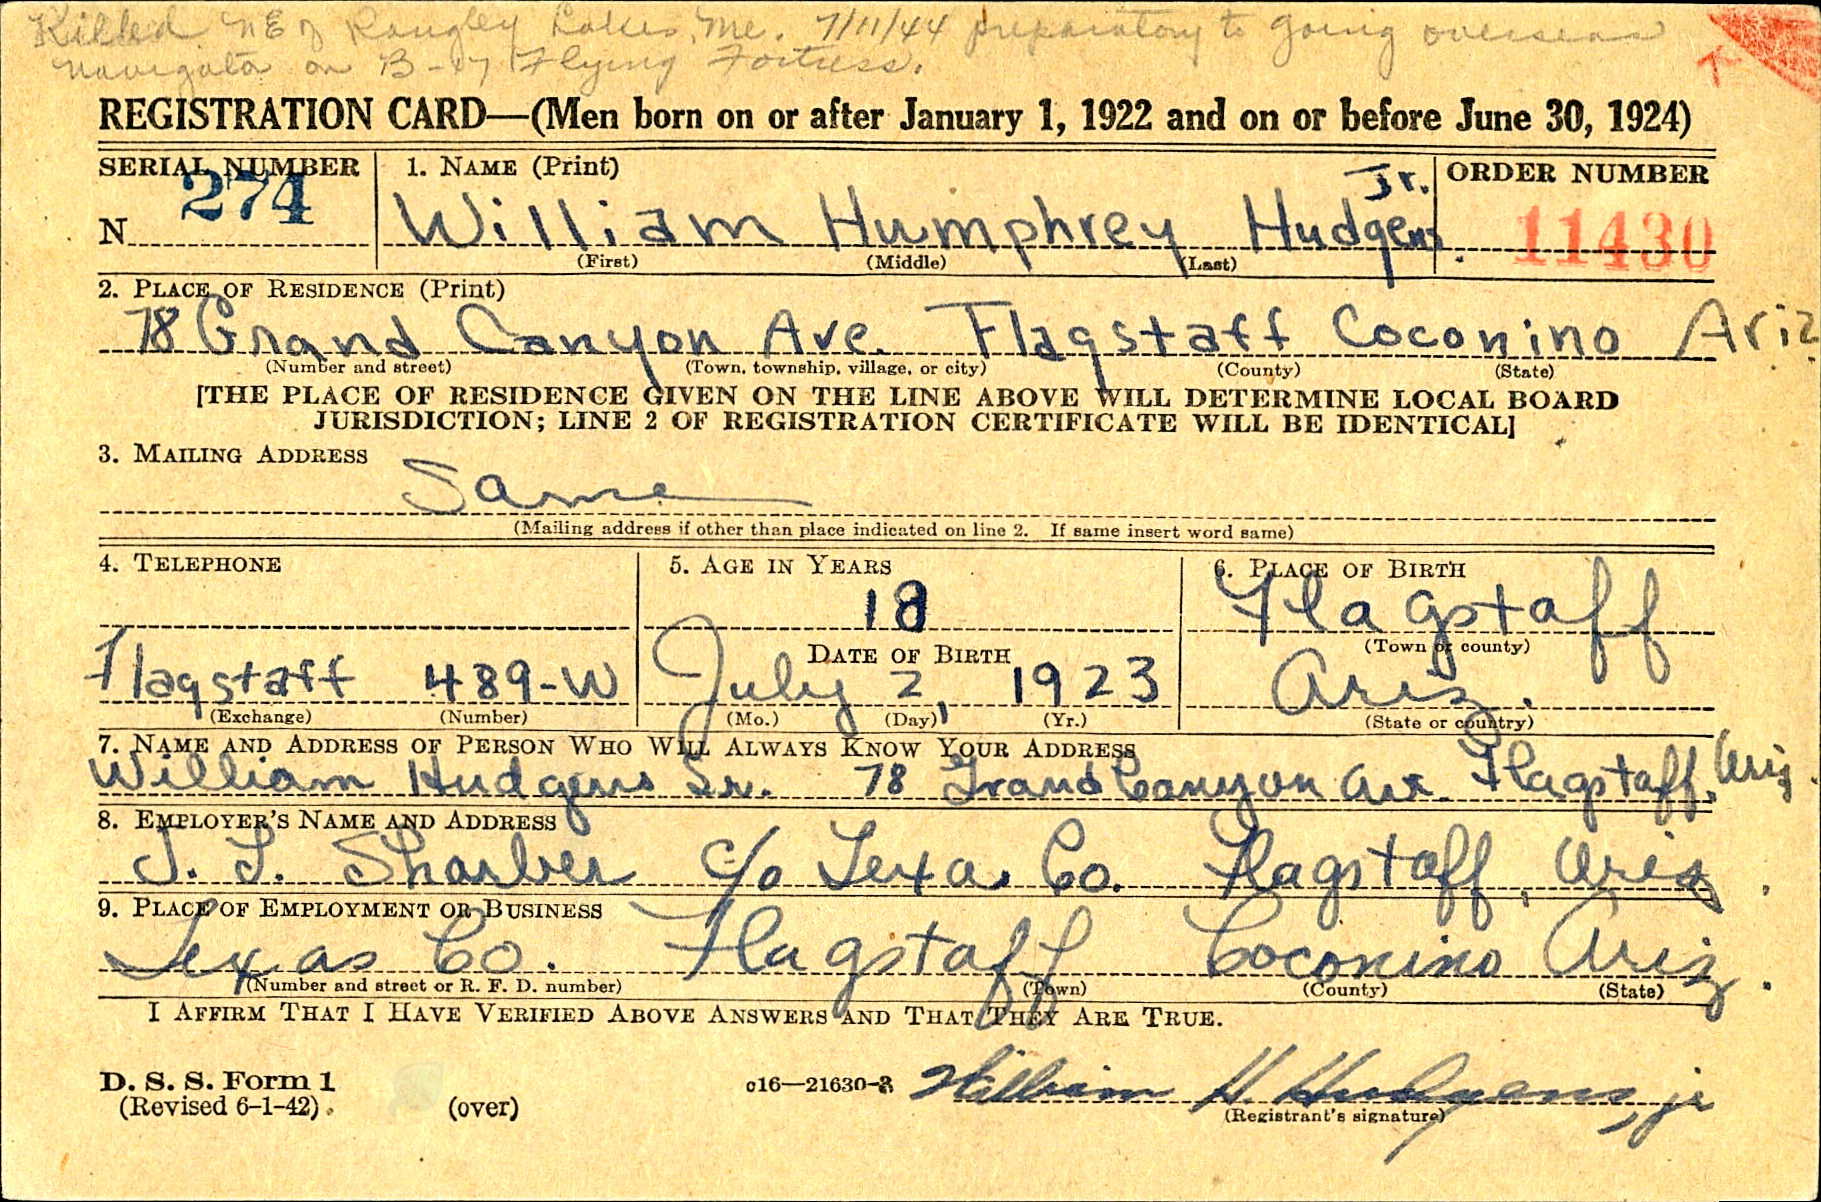 Killed NE of Rangley Lakes, Me. 7/11/44 preparatory to going overseas
navigator on B-17 Flying Fortress.
REGISTRATION CARD—(Men born on or after January 1, 1922 and on or before June 30, 1924)
SERIAL NUMBER 1. NAME (Print) ORDER NUMBER
N 274 William Humphrey Hudgens Jr. 11430
(First) (Middle) (Last)
2. PLACE OF RESIDENCE (Print)
78 Grand Canyon Ave. Flagstaff Coconino Ariz
(Number and street) (Town, township, village, or city) (County) (State)
[THE PLACE OF RESIDENCE GIVEN ON THE LINE ABOVE WILL DETERMINE LOCAL BOARD
JURISDICTION; LINE 2 OF REGISTRATION CERTIFICATE WILL BE IDENTICAL]
3. MAILING ADDRESS
Same
(Mailing address if other than place indicated on line 2. If same insert word same)
4. TELEPHONE 5. AGE IN YEARS 6. PLACE OF BIRTH
18 Flagstaff
DATE OF BIRTH (Town or county)
Flagstaff 489-W July 2, 1923 Ariz.
(Exchange) (Number) (Mo.) (Day) (Yr.) (State or country)
7. NAME AND ADDRESS OF PERSON WHO WILL ALWAYS KNOW YOUR ADDRESS
William Hudgens Sr. 78 Grand Canyon Ave. Flagstaff, Ariz.
8. EMPLOYER'S NAME AND ADDRESS
J. L. Sharber c/o Texa. Co. Flagstaff, Ariz.
9. PLACE OF EMPLOYMENT OR BUSINESS
Texas Co. Flagstaff Coconino Ariz.
(Number and street or R. F. D. number) (Town) (County) (State)
I AFFIRM THAT I HAVE VERIFIED ABOVE ANSWERS AND THAT THEY ARE TRUE.
D. S. S. Form 1 c16—21630-2 William H. Hudgens, jr
(Revised 6-1-42) (over) (Registrant's signature)